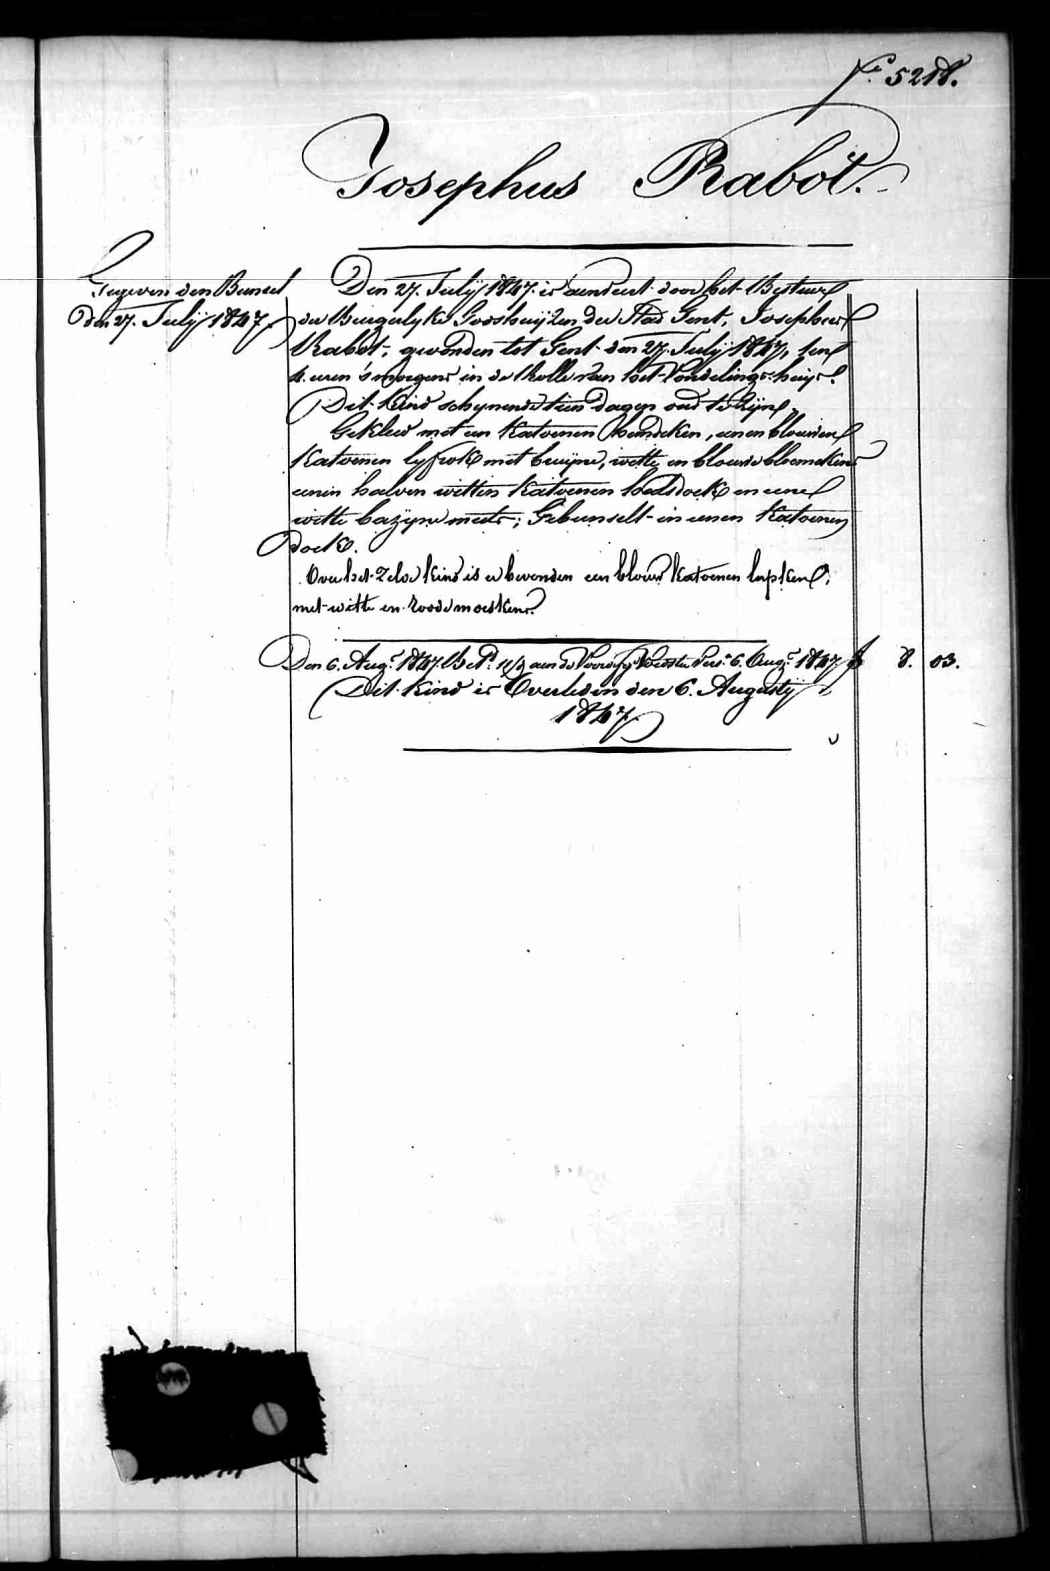 Fo 5218.
Josephus Rabôt.
Gegeven den Bunsel
den 27. Julÿ 1847.
Den 27. Julÿ 1847. is aenveert door het Bestuer
der Burgerlyke Godshuijzen der Stad Gent, Josephus
Rabôt, gevonden tot Gent den 27. Julÿ 1847, ten
4. uren 's morgens in de Rolle van het Vondelings-huijs.
Dit Kind schynende tien dagen oud te Zijn,
Gekleed met een Katoenen hemdeken, eenen blouwen
Katoenen lyfrok met bruijne, witte en blouwe bloemekens
eenen halven witten Katoenen halsdoek en eene
witte bazÿne muts; Gebunselt in eenen Katoenen
doek.
Over het Zelve Kind is er bevonden een blouw Katoenen lapken,
met witte en roode moeskens.
Den 6. Augt. 1847. Bet. aan de Voedster 6. Augt. 1847 f 8. 03.
Dit Kind is Overleden den 6. Augustÿ
1847.